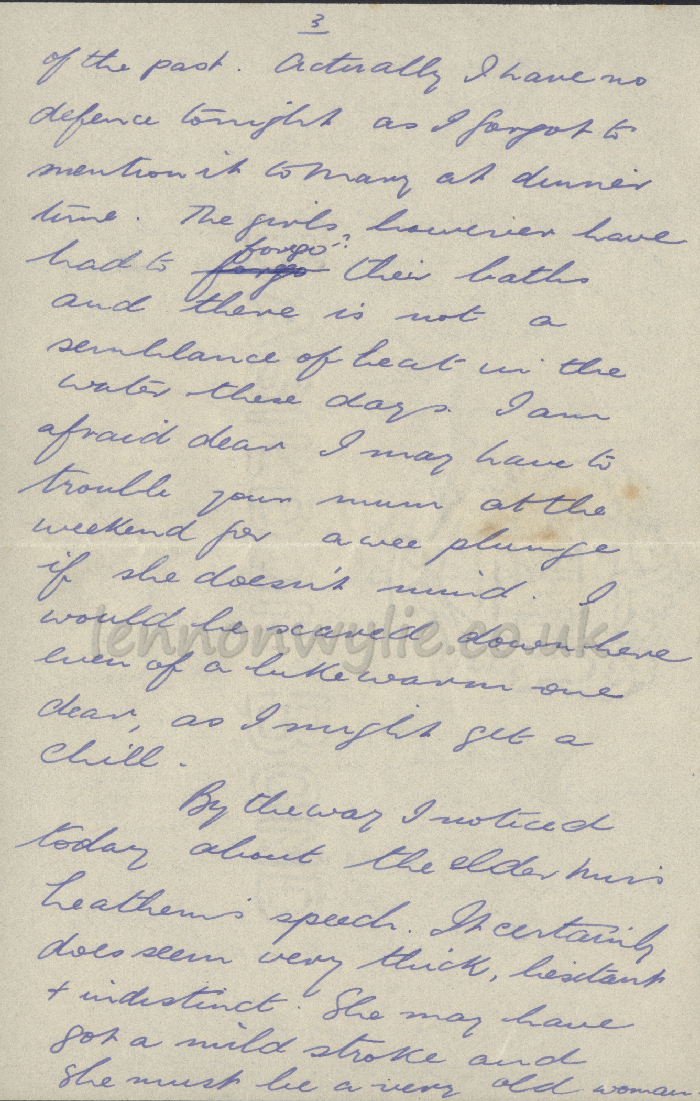 3
of the past. Actually I have no
defence tonight as I forgot to
mention it to Mary at dinner
time. The girls however have
forgo?
had to forgo their baths
and there is not a
semblance of heat in the
water these days. I am
afraid dear I may have to
trouble your mum at the
weekend for a wee plunge
if she doesn't mind. I
would be scared down here
lennonwylie.co.uk
even of a lukewarm one
dear, as I might get a
chill.
By the way I noticed
today about the elder Miss
speech. It certainly
does seem very thick, hesitant
+ indistinct. She may have
got a mild stroke and
she must be a very old woman